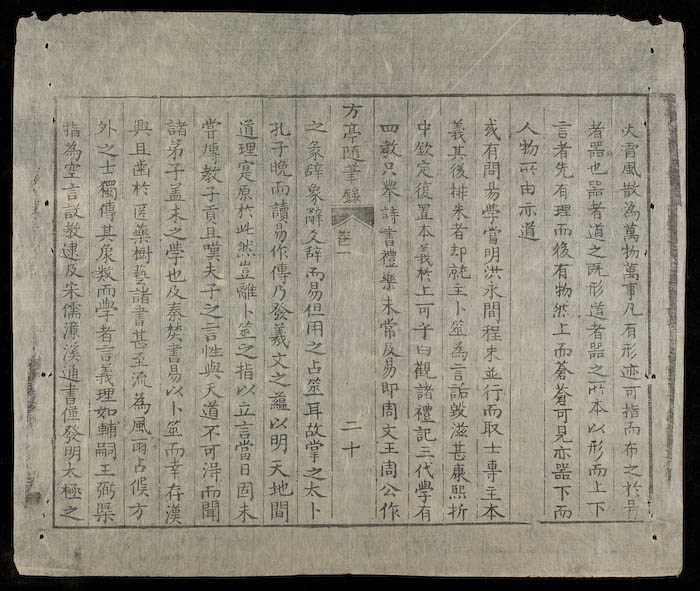 火霄風散為萬物萬事凡有形迹可指而布之於易
者器也器者道之既形道者器之所本以形而上下
言者先有理而後有物然上而蒼蒼可見亦器下而
人物所由亦道
或有問易學當明洪永間程朱並行而取士專主本
義其後排朱者却就主卜筮為言詬毀滋甚康熙折
中欽定復置本義於上可乎曰觀諸禮記三代學有
四教只舉詩書禮樂未常及易即周文王周公作
方亭隨筆錄 卷一 二十
之彖辭象辭爻辭而易但用之占筮耳故掌之太卜
孔子晚而讀易作傳乃發羲文之蘊以明天地間
道理寔原於此然豈離卜筮之指以立言當日固未
嘗專教子貢且嘆夫子之言性與天道不可淂而聞
諸弟子盖未之學也及秦焚書易以卜筮而幸存漢
興且齒於医藥樹藝諸書甚至流為風雨占候方
外之士獨傳其象数而學者言義理如輔嗣王弼槩
指為空言設教逮及宋儒濂溪通書僅發明太極之